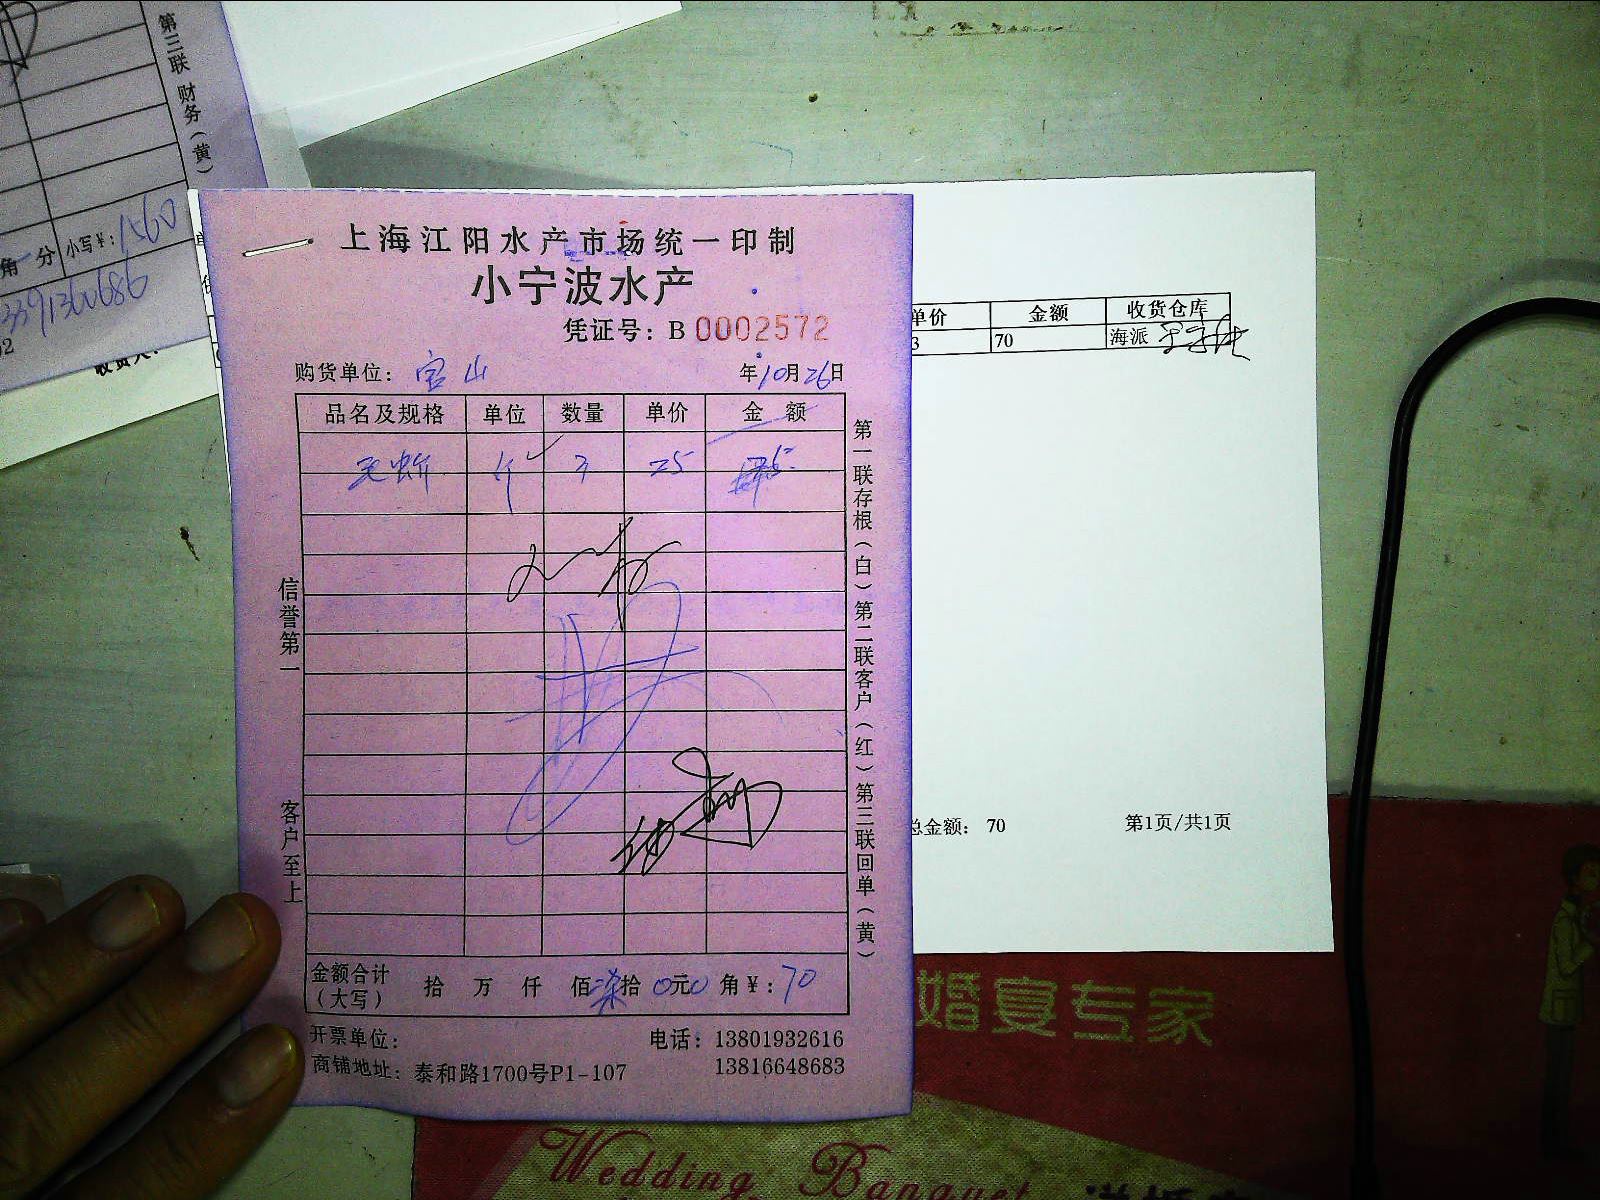 第三联 财务（黄）
角 分 小写¥：1560
13391360686
上海江阳水产市场统一印制
小宁波水产
凭证号：B 0002572
购货单位：宝山
年10月26日
品名及规格 单位 数量 单价 金额
3 25
第一联存根（白）第二联客户（红）第三联回单（黄）
信誉第一
客户至上
金额合计（大写） 拾 万 仟 佰 柒拾 0元0 角¥：70
开票单位：
电话：13801932616
13816648683
商铺地址：泰和路1700号P1-107
单价 金额 收货仓库
3 70 海派
总金额：70
第1页/共1页
收货人：
婚宴专家
Wedding Banquet